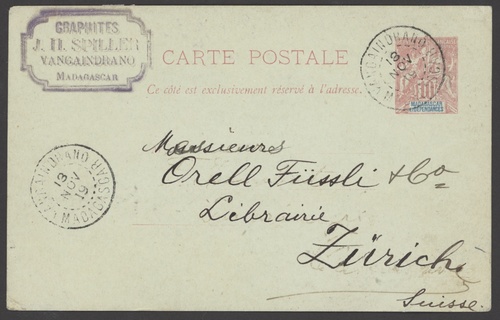 GRAPHITES
J. H. SPILLER
VANGAINDRANO
MADAGASCAR
CARTE POSTALE
Ce côté est exclusivement réservé à l'adresse.
VANGAINDRANO
MADAGASCAR
10
MADAGASCAR
ET DÉPENDANCES
Messieurs
Orell Füssli & Co
Librairie
Zürich
Suisse.
VANGAINDRANO
13
NOV
MADAGASCAR